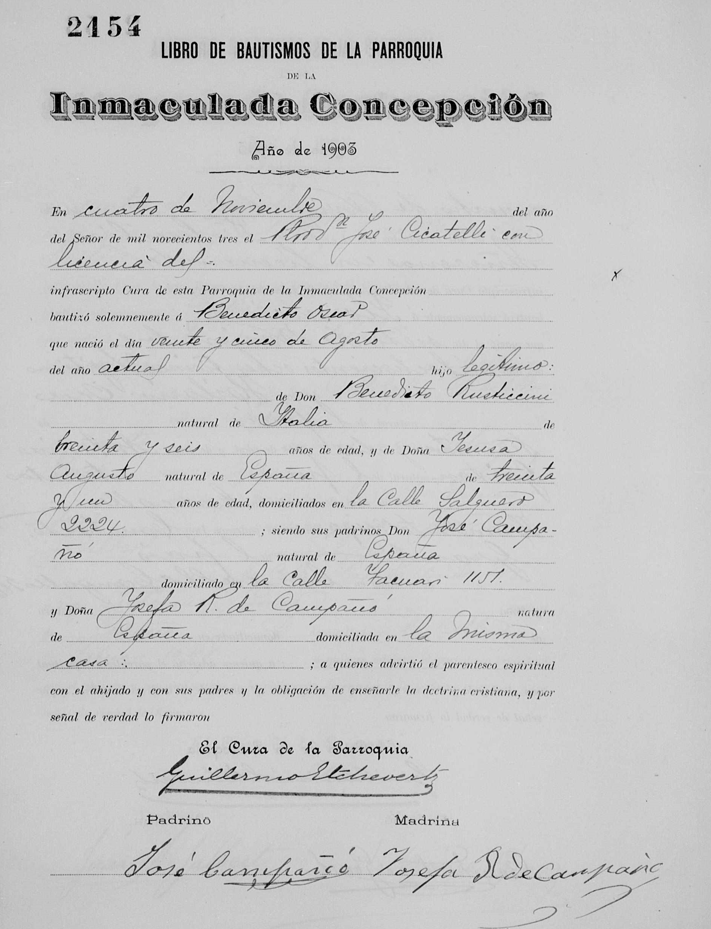 2154
LIBRO DE BAUTISMOS DE LA PARROQUIA
DE LA
Inmaculada Concepción
Año de 1903
En cuatro de Noviembre del año
del Señor de mil novecientos tres el José Cicatelli con
licencia del
infrascripto Cura de esta Parroquia de la Inmaculada Concepción
bautizó solemnemente á Benedicto Oscar
que nació el día veinte y cinco de Agosto
del año actual hijo legítimo:
de Don Benedicto Rusticcini
natural de Italia de
treinta y seis años de edad, y de Doña Jesusa
Augusto natural de España de treinta
y un años de edad, domiciliados en la Calle Salguero
2224. ; siendo sus padrinos Don José Campa-
ñó natural de España
domiciliado en la Calle Tacuari 1151.
y Doña Josefa R. de Campañó natura
de España domiciliada en la misma
casa : ; a quienes advirtió el parentesco espiritual
con el ahijado y con sus padres y la obligación de enseñarle la doctrina cristiana, y por
señal de verdad lo firmaron
El Cura de la Parroquia
Guillermo Etchevertz
Padrino Madrina
José Campañó Josefa R de Campaño